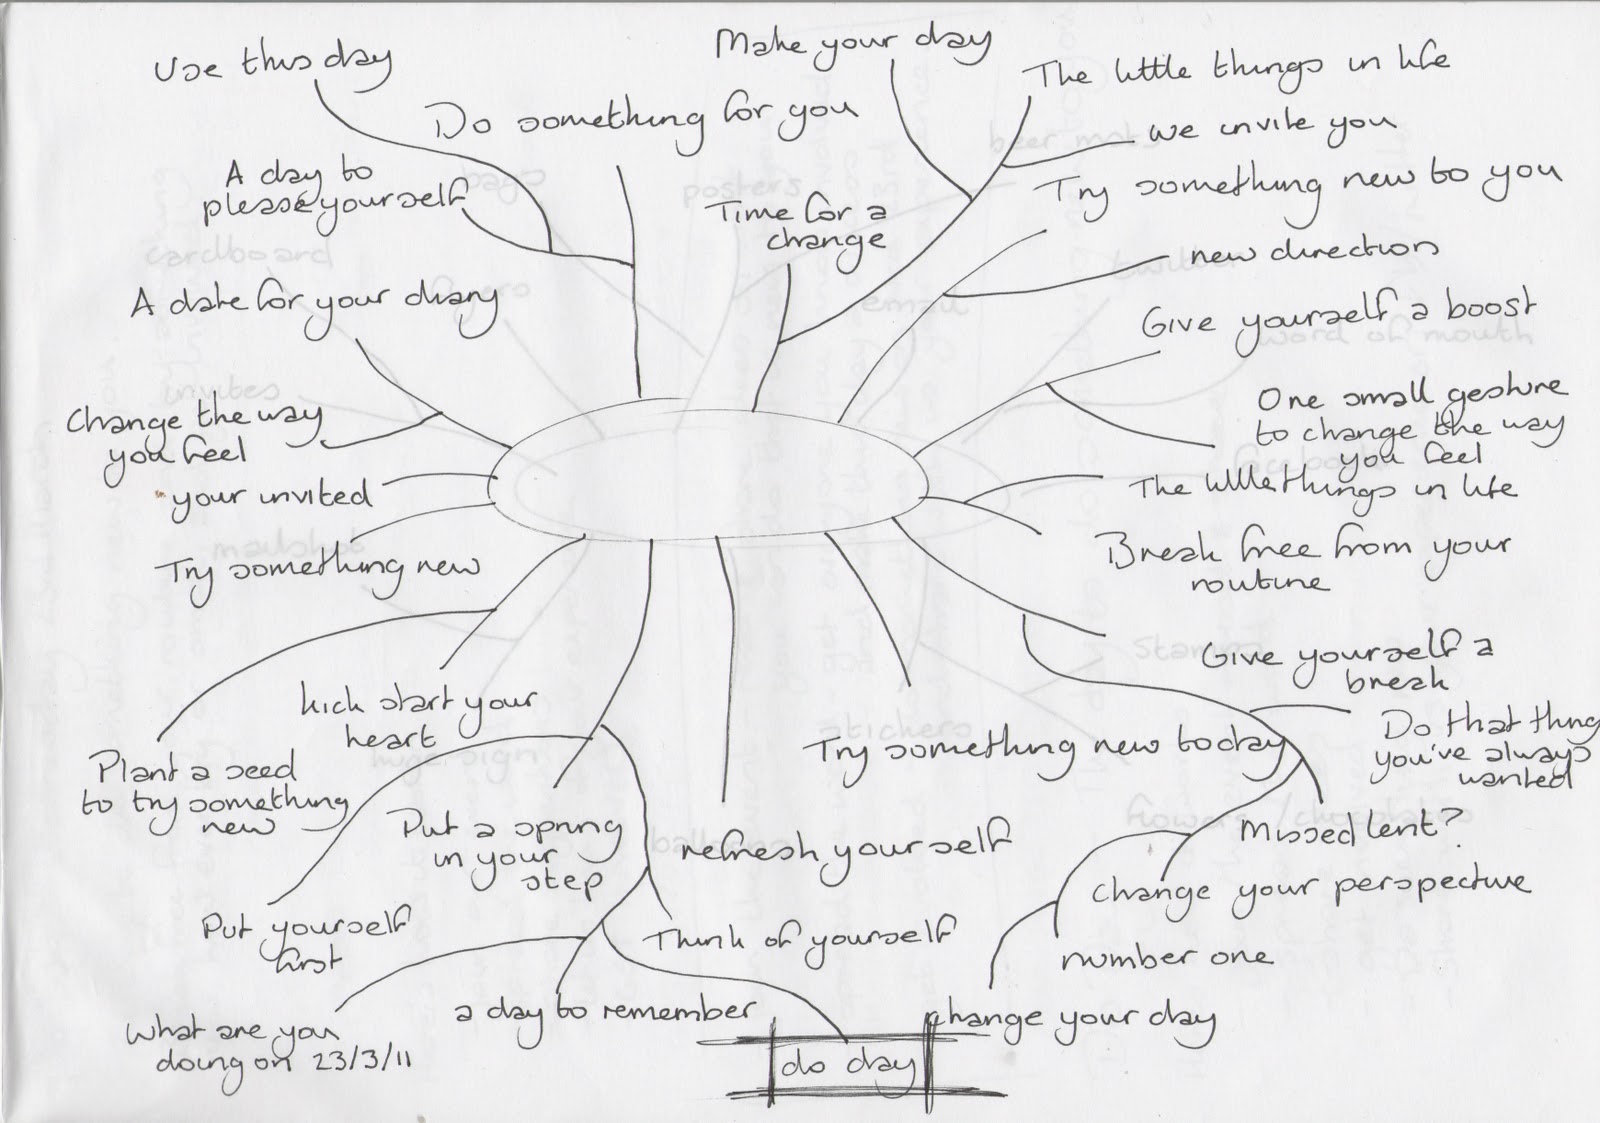 Use this day
Make your day
The little things in life
Do something for you
we invite you
A day to
please yourself
Try something new to you
Time for a
change
new direction
A date for your diary
Give yourself a boost
Change the way
you feel
One small gesture
to change the way
you feel
your invited
The little things in life
Try something new
Break free from your
routine
Give yourself a
break
kick start your
heart
Do that thing
you've always
wanted
Try something new today
Plant a seed
to try something
new
Put a spring
in your
step
refresh yourself
Missed lent?
change your perspective
Put yourself
first
Think of yourself
number one
a day to remember
change your day
What are you
doing on 23/3/11
do day
posters
beer mats
bags
cardboard
email
word of mouth
invites
facebook
mailshot
stamps
stickers
huge sign
flowers/chocolates